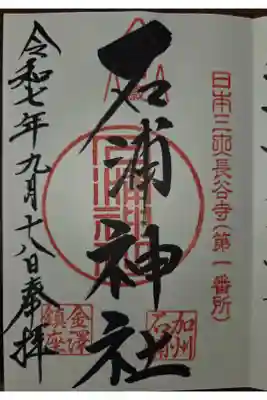 日本三 長谷寺(第一番所)
石浦神社
加州
石浦
令和七年九月十八日奉拝
金澤
鎮座